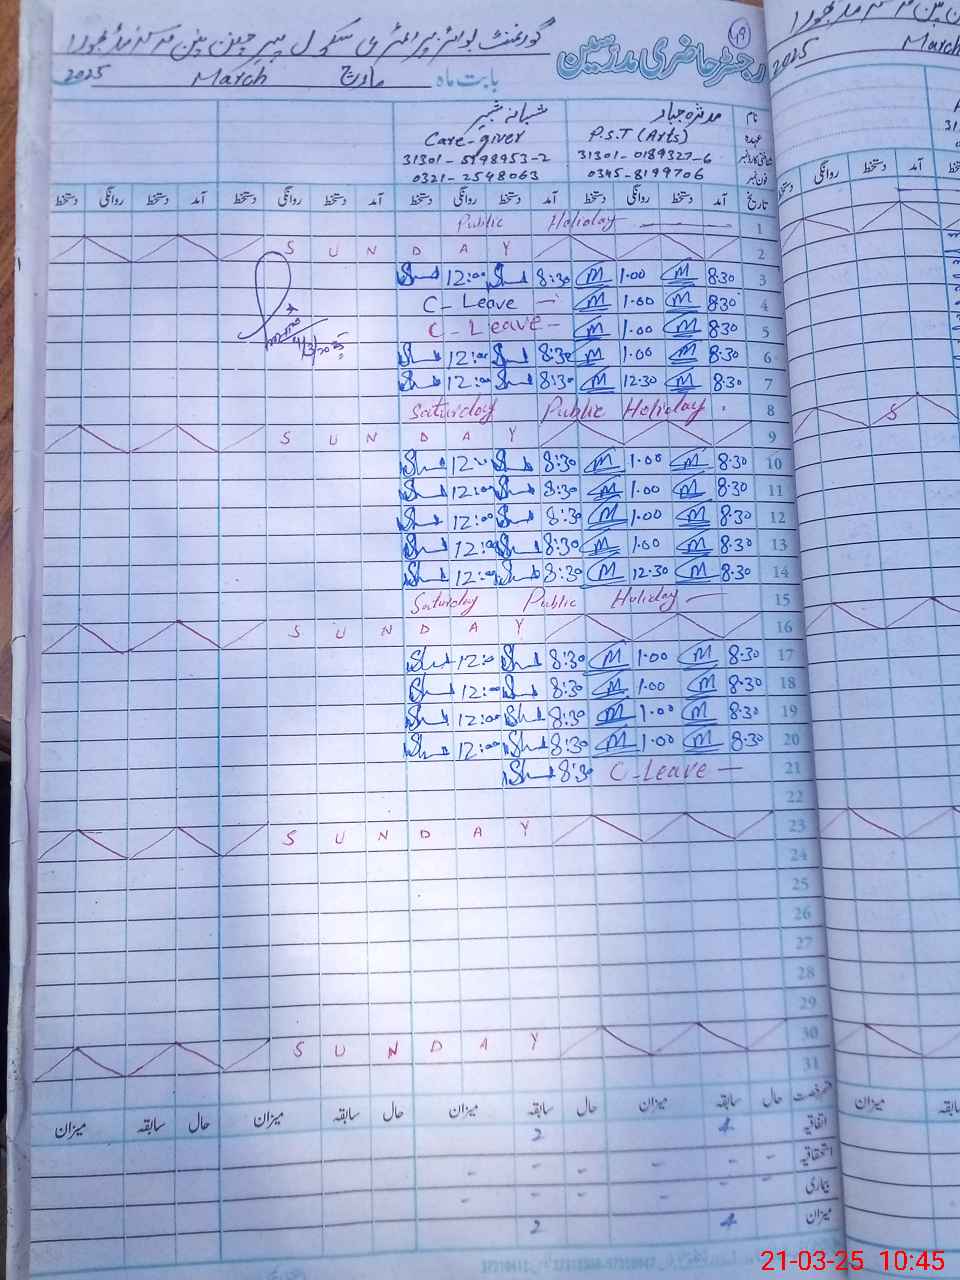 49
رجسٹر حاضری مدرسین
گورنمنٹ بوائز پرائمری سکول
بابت ماہ مارچ March 2025
نام مدثرہ جبار شبانہ شبیر
عہدہ P.S.T (Arts) Care-giver
31301-0189327-6 31301-5198953-2
فون نمبر 0345-8199706 0321-2548063
تاریخ آمد دستخط روانگی دستخط آمد دستخط روانگی دستخط آمد دستخط روانگی دستخط آمد دستخط روانگی دستخط
1 Public Holiday
2 S U N D A Y
3 8:30 M 1.00 M 8:30 12:00
4 8:30 M 1.00 M C-Leave
5 8:30 M 1.00 M C-Leave
6 8:30 M 1.00 M 8:30 12:00
7 8:30 M 12.30 M 8:30 12:00
4/3/2025
8 Saturday Public Holiday
9 S U N D A Y
10 8:30 M 1.00 M 8:30 12:00
11 8:30 M 1.00 M 8:30 12:00
12 8:30 M 1.00 M 8:30 12:00
13 8:30 M 1.00 M 8:30 12:00
14 8:30 M 12.30 M 8:30 12:00
15 Saturday Public Holiday
16 S U N D A Y
17 8:30 M 1.00 M 8:30 12:00
18 8:30 M 1.00 M 8:30 12:00
19 8:30 M 1.00 M 8:30 12:00
20 8:30 M 1.00 M 8:30 12:00
21 C-Leave 8:30
22
23 S U N D A Y
24
25
26
27
28
29
30 S U N D A Y
31
حال سابقہ میزان حال سابقہ میزان حال سابقہ میزان حال سابقہ میزان
اتفاقیہ 4 2
استحقاقیہ - - - - -
بیماری - - - -
میزان 4 2
2025
March
آمد روانگی دستخط
S
میزان
21-03-25 10:45